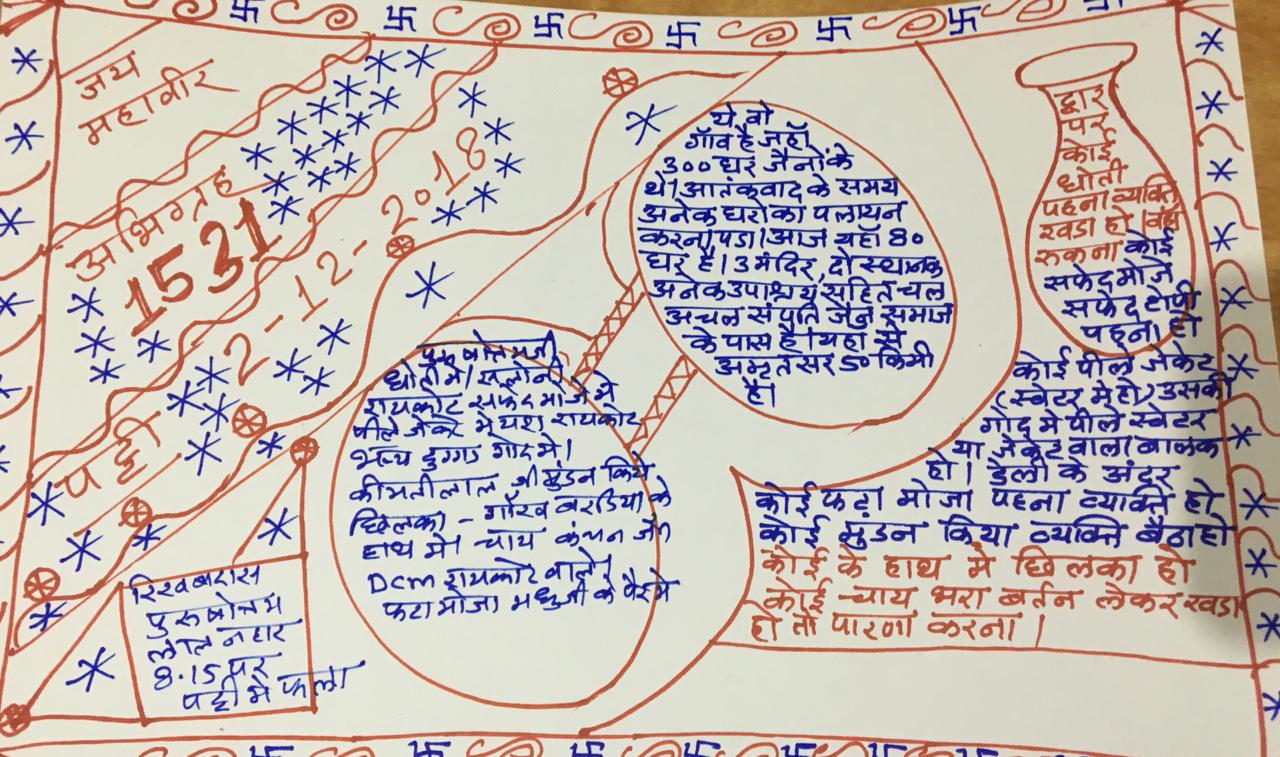 जय
महावीर
अभिग्रह
1531
2-12-2018
पट्टी
ये वो
गाँव है जहाँ
300 घर जैनों के
थे। आतंकवाद के समय
अनेक घरो का पलायन
करना पडा। आज यहाँ 80
घर है। 3 मंदिर, दो स्थानक
अनेक उपाश्रय सहित चल
अचल संपति जैन समाज
के पास है। यहा से
अमृतसर 50 किमी
है।
द्वार
पर
कोई
धोती
पहना व्यक्ति
खडा हो। वहाँ
रुकना कोई
सफेद मोजे
सफेद टोपी
पहना हो
कोई पीले जेकेट
(स्वेटर मे हो) उसकी
गोद मे पीले स्वेटर
या जेकेट वाला बालक
हो। डेली के अंदर
कोई फटा मोजा पहना व्यक्ति हो
कोई मुंडन किया व्यक्ति बैठा हो
कोई के हाथ मे छिलका हो
कोई चाय भरा बर्तन लेकर खडा
हो तो पारणा करना।
पुरुषोत्तमजी
धोती मे।
रायकोट सफेद मोजे मे
पीले जेकेट मे यश रायकोट
भव्य दुग्गड गोद मे।
कीमतीलाल जी मुंडन किये
छिलका - गौरव बरडिया के
हाथ मे। चाय कंचन जैन
DCM रायकोट वाले।
फटा मोजा मधुजी के पैर मे
रिखबदास
पुरुषोत्तम
लाल नाहर
8.15 पर
पट्टी मे फला